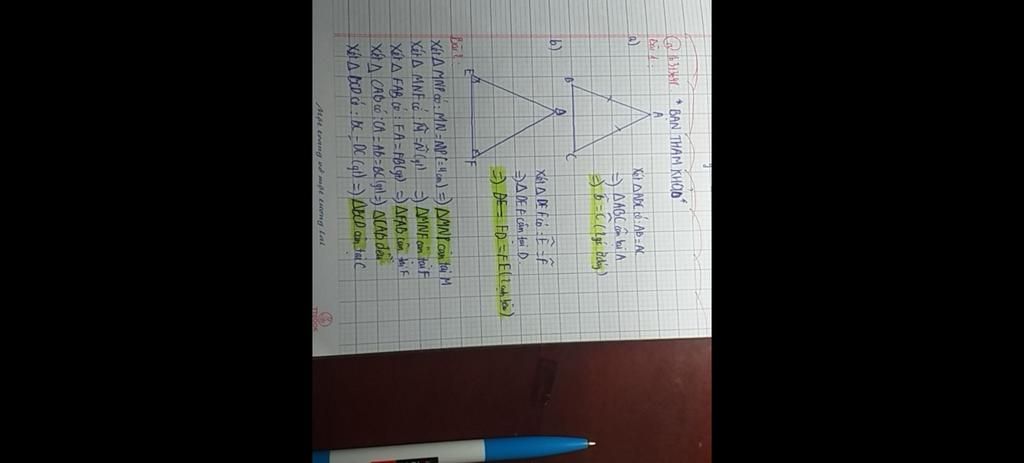 * BẢN THAM KHẢO *
Bài 1:
a)
A
B
C
Xét ΔABC có: AB = AC
=) ΔABC cân tại A
=) B̂ = Ĉ (2 góc ở đáy)
b)
D
E
F
Xét ΔDEF có: Ê = F̂
=) ΔDEF cân tại D.
=) DE = FD = FE (2 cạnh bên)
Bài 2:
Xét Δ MNP có: MN = NP (= 4cm) =) ΔMNP cân tại M
Xét Δ MNF có: M̂ = N̂ (gt) =) ΔMNF cân tại F
Xét Δ FAB có: FA = FB (gt) =) ΔFAB cân tại F
Xét Δ CAB có: CA = AB = BC (gt) =) ΔCAB đều
Xét Δ BCD có: BC = DC (gt) =) ΔBCD cân tại C